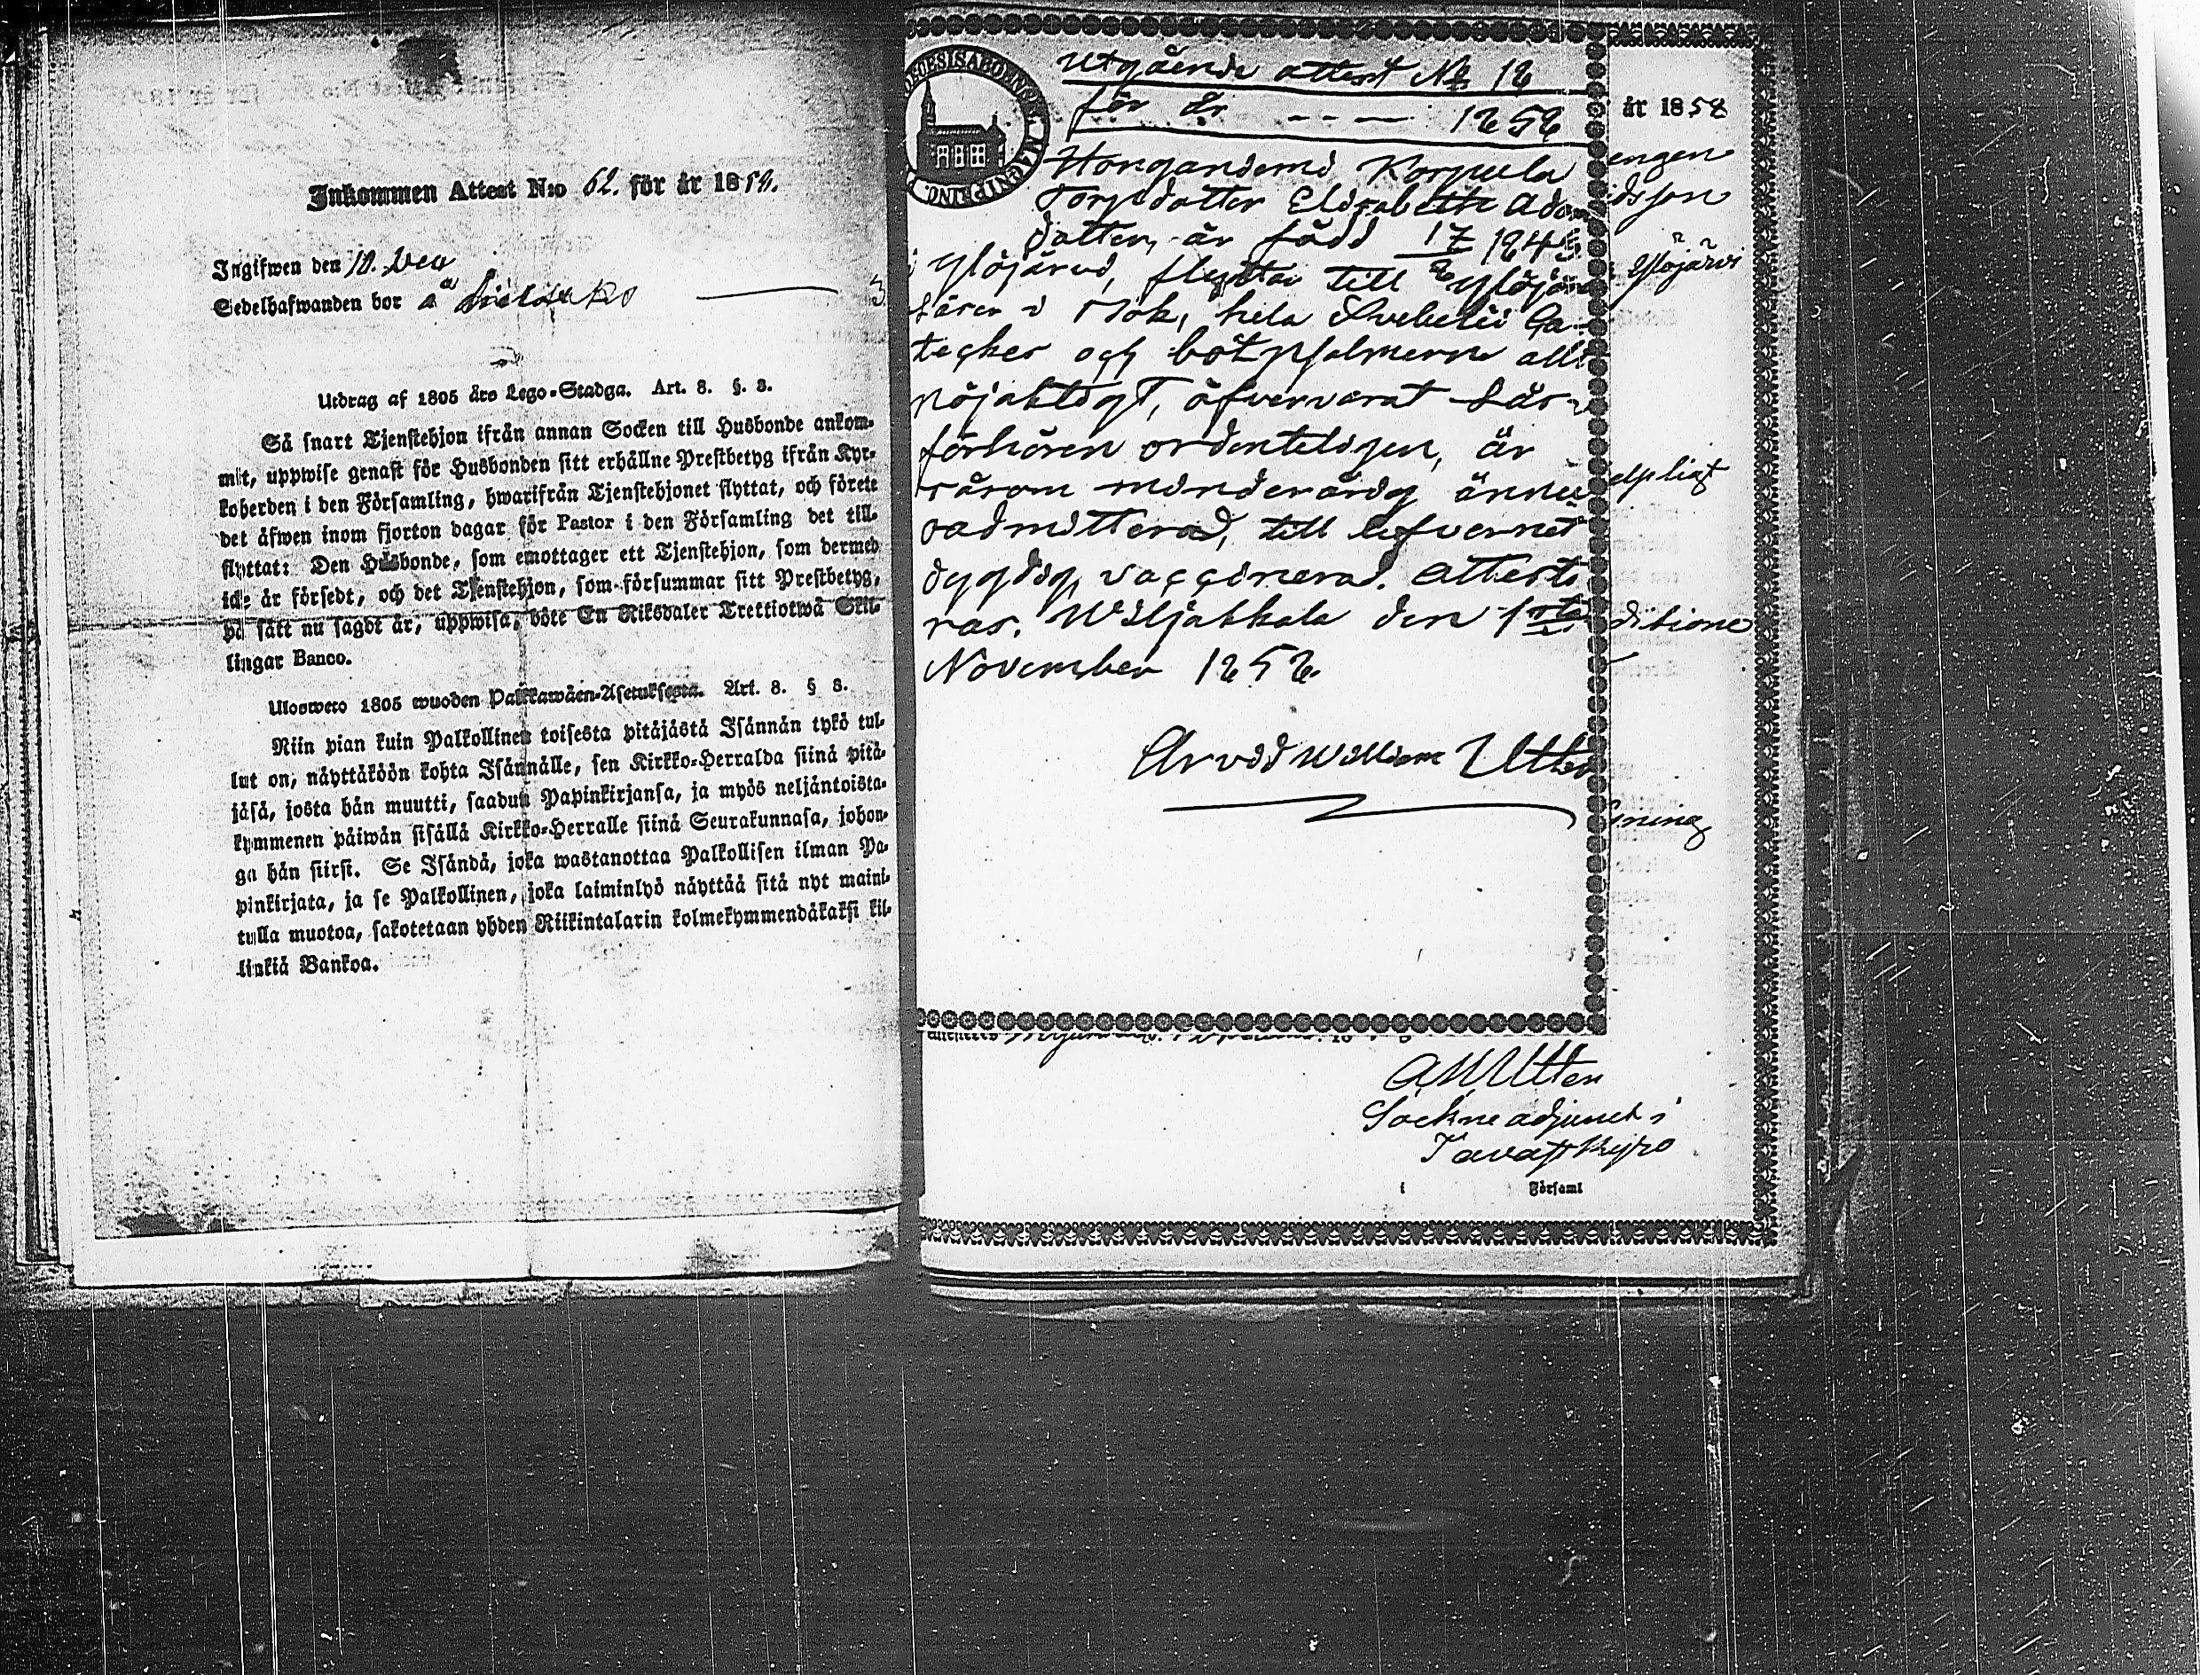 Inkommen Attest N:o 62. för år 1858.
Ingifwen den 10. Dec
Sedelhafwanden bor å
Utdrag af 1805 års Lego-Stadga. Art. 8. §. 8.
Så snart Tjenstehjon ifrån annan Socken till Husbonde ankom-
mit, uppwise genast för Husbonden sitt erhållne Prestbetyg ifrån Kyr-
koherden i den Församling, hwarifrån Tjenstehjonet flyttat, och förete
det äfwen inom fjorton dagar för Pastor i den Församling det till-
flyttat: Den Husbonde, som emottager ett Tjenstehjon, som dermed
icke är försedt, och det Tjenstehjon, som försummar sitt Prestbetyg,
på sätt nu sagdt är, uppwisa, böte En Riksdaler Trettiotwå Skil-
lingar Banco.
Ulosweto 1805 wuoden Palkkawäen-Asetuksesta. Art. 8. § 8.
Niin pian kuin Palkollinen toisesta pitäjästä Isännän tykö tul-
lut on, näyttäköön kohta Isännälle, sen Kirkko-Herralda siinä pitä-
jäsä, josta hän muutti, saadun Papinkirjansa, ja myös neljäntoista-
kymmenen päiwän sisällä Kirkko-Herralle siinä Seurakunnasa, johon-
ga hän siirsi. Se Isändä, joka wastanottaa Palkollisen ilman Pa-
pinkirjata, ja se Palkollinen, joka laiminlyö näyttää sitä nyt maini-
tulla muotoa, sakotetaan yhden Riikintalarin kolmekymmendäkaksi kil-
linkiä Bankoa.
Utgående attest No 18
för år --- 1858
Korpula
Torpdotter Elisabetha Adam
dotter, är född 17/8 1845
i Ylöjärvi, flyttar till Ylöjär
läser i Bok, hela Svebelii Ca-
teches och botpsalmerna allt
nöjaktigt, öfvervarat Läs-
förhören ordenteligen, är
såsom minderårig ännu
oadmitterad, till lefvernet
dygdig, vaccinerad. Atteste
ras. Wiljakkala den 1sta
November 1858.
Arvid William Utter
år 1858
engen
idsson
Ylöjärvi
elpligt
ditione
ning
A W Utter
Sockneadjunct i
Tavastkyro
i Församl